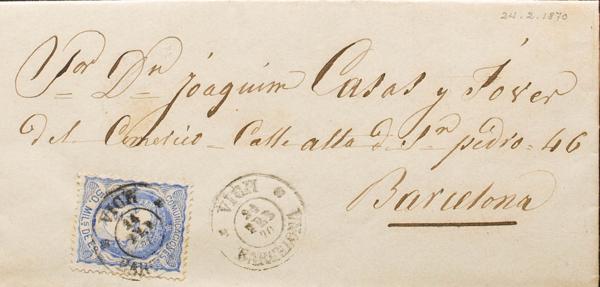 24.2.1870
Sor Dn Joaquim Casas y Jover
del Comercio - Calle alta d. Sn pedro - 46
Barcelona
VICH
24 FEB 70
BARCELONA
VICH
24
BAR
50 MILS DE E.
COMUNICACIONES